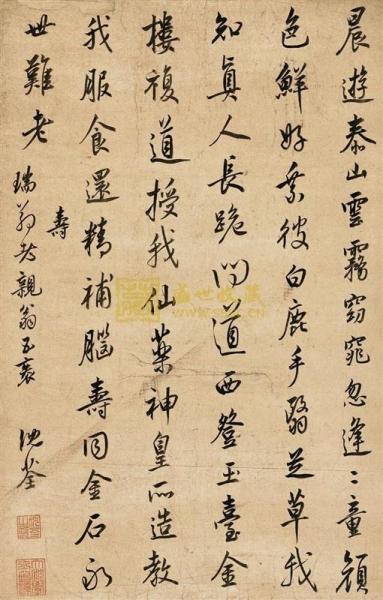 晨遊泰山雲霧窈窕忽逢二童顏
色鮮好乘彼白鹿手翳芝草我
知眞人長跪問道西登玉臺金
樓複道授我仙藥神皇所造教
我服食還精補腦壽同金石永
世難老
壽
瑞翁老親翁五袠
沈荃
盛世收藏